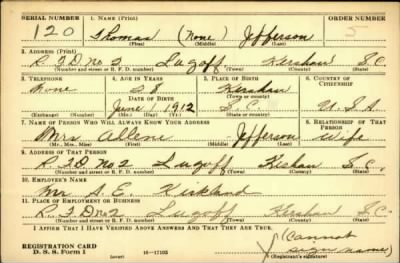 SERIAL NUMBER 1. NAME (Print) ORDER NUMBER
120 Thomas (None) Jefferson 5
(First) (Middle) (Last)
2. ADDRESS (Print)
R.F.D no 2 Lugoff Kershaw S.C.
(Number and street or R. F. D. number) (Town) (County) (State)
3. TELEPHONE 4. AGE IN YEARS 5. PLACE OF BIRTH 6. COUNTRY OF CITIZENSHIP
None 28 Kershaw
DATE OF BIRTH (Town or county)
June 1 1912 S.C. U.S.A
(Exchange) (Number) (Mo.) (Day) (Yr.) (State or country)
7. NAME OF PERSON WHO WILL ALWAYS KNOW YOUR ADDRESS 8. RELATIONSHIP OF THAT PERSON
Mrs Allene Jefferson Wife
(Mr., Mrs., Miss) (First) (Middle) (Last)
9. ADDRESS OF THAT PERSON
R.F.D. no 2 Lugoff Kershaw S.C.
(Number and street or R. F. D. number) (Town) (County) (State)
10. EMPLOYER'S NAME
Mr. A. E. Kirkland
11. PLACE OF EMPLOYMENT OR BUSINESS
R.F.D no 2 Lugoff Kershaw S.C.
(Number and street or R. F. D. number) (Town) (County) (State)
I AFFIRM THAT I HAVE VERIFIED ABOVE ANSWERS AND THAT THEY ARE TRUE.
REGISTRATION CARD (Cannot
D. S. S. Form 1 (over) 16—17105 sign name)
(Registrant's signature)